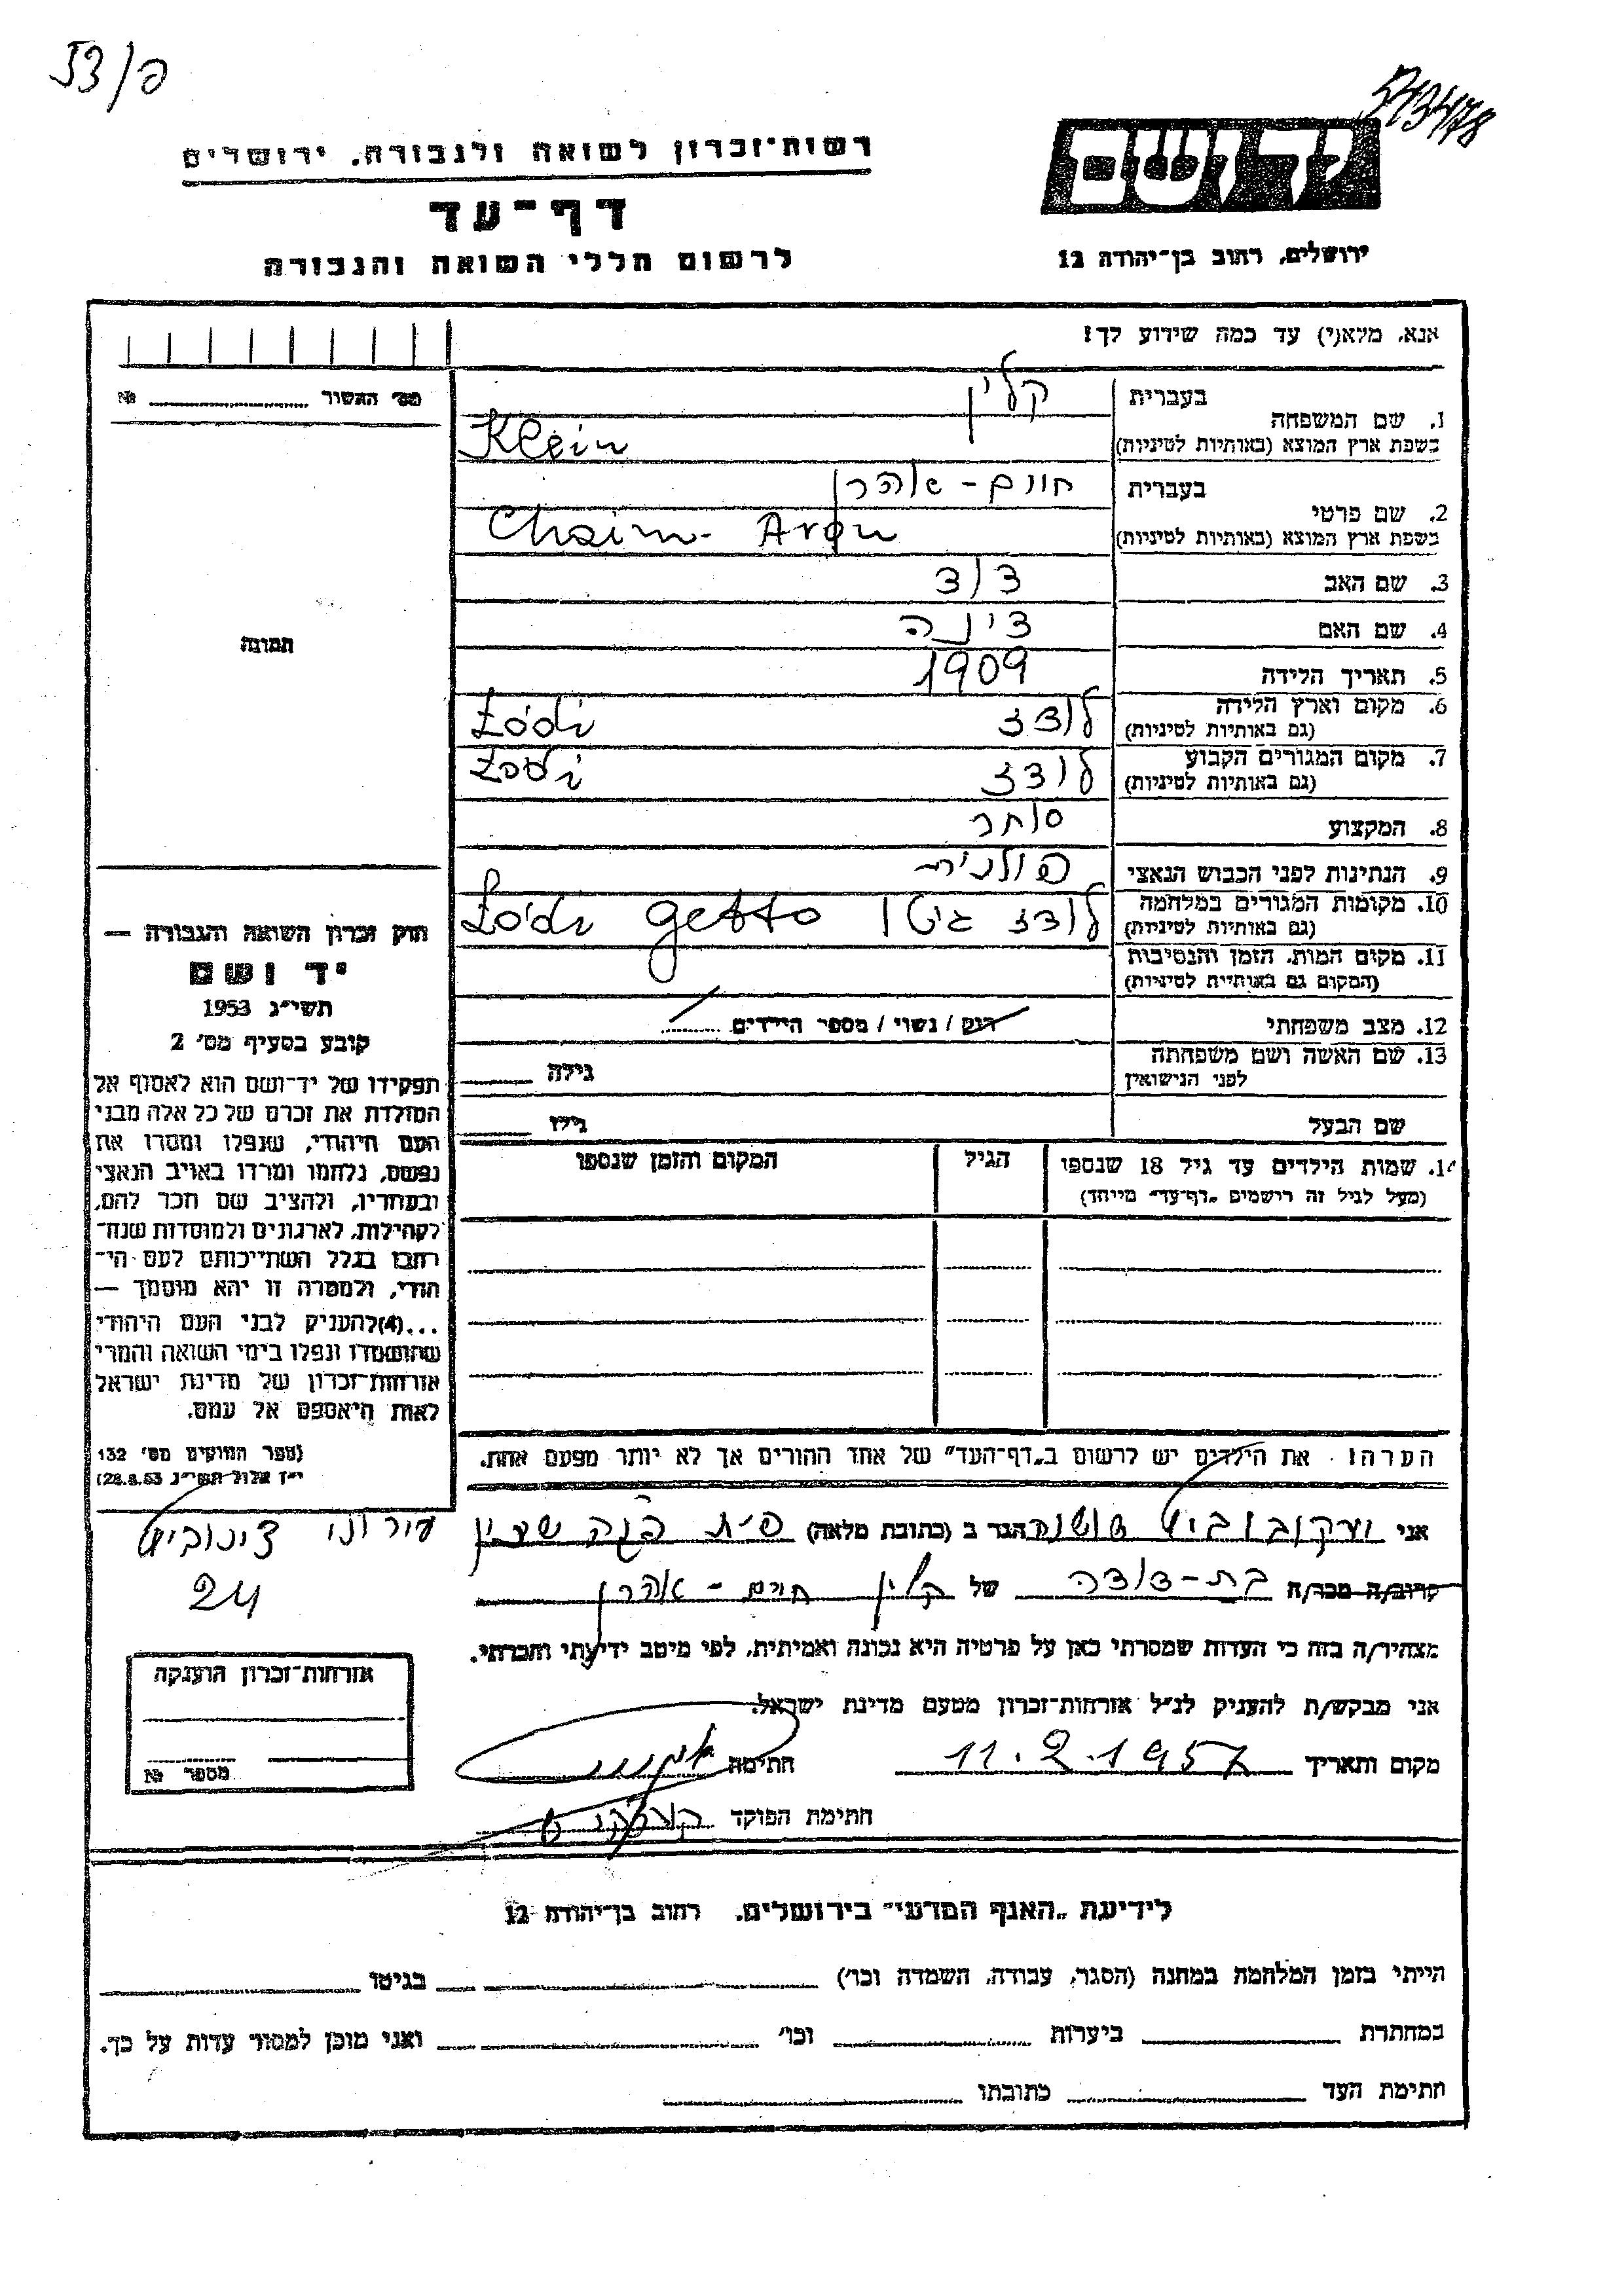 53/פ
543478
רשות־זכרון לשואה ולגבורה, ירושלים
דף־עד
לרשום חללי השואה והגבורה
ידושם
ירושלים, רחוב בן־יהודה 12
אנא, מלא(י) עד כמה שידוע לך!
מס׳ האשור № 
1. שם המשפחה בעברית קלין
בשפת ארץ המוצא (באותיות לטיניות) Klein
2. שם פרטי בעברית חיים - אהרן
בשפת ארץ המוצא (באותיות לטיניות) Chaim - Aron
3. שם האב דוד
4. שם האם דינה
5. תאריך הלידה 1909
6. מקום וארץ הלידה (גם באותיות לטיניות) לודז Łódź
7. מקום המגורים הקבוע (גם באותיות לטיניות) לודז Łodź
8. המקצוע סוחר
9. הנתינות לפני הכבוש הנאצי פולנית
10. מקומות המגורים במלחמה (גם באותיות לטיניות) לודז גיטו Łódź getto
11. מקום המות, הזמן והנסיבות (המקום גם באותיות לטיניות)
12. מצב משפחתי רוק / נשוי / מספר הילדים
13. שם האשה ושם משפחתה לפני הנישואין גילה
שם הבעל גילו
14. שמות הילדים עד גיל 18 שנספו
(מעל לגיל זה רישמים „דף־עד״ מייחד)
הגיל
המקום והזמן שנספו
תמונה
חוק זכרון השואה והגבורה —
יד ושם
תשי״ג 1953
קובע בסעיף מס׳ 2
תפקידו של יד־ושם הוא לאסוף אל
המולדת את זכרם של כל אלה מבני
העם היהודי, שנפלו ומסרו את
נפשם, נלחמו ומרדו באויב הנאצי
ובעוזריו, ולהציב שם וזכר להם,
לקהילות, לארגונים ולמוסדות שנח־
רבו בגלל השתייכותם לעם הי־
הודי, ולמטרה זו יהא מוסמך —
...(4) להעניק לבני העם היהודי
שהושמדו ונפלו בימי השואה והמרי
אזרחות־זכרון של מדינת ישראל
לאות היאספם אל עמם.
(ספר החוקים מס׳ 132
י״ז אלול תשי״ג 28.8.53)
הערה: את הילדים יש לרשום ב„דף־העד״ של אחד ההורים אך לא יותר מפעם אחת.
אני יעקובוביץ שושנה הגר ב (כתובת מלאה) פ״ת
24
קרוב/ה מכר/ה בת-דודה של קלין חיים - אהרן
מצהיר/ה בזה כי העדות שמסרתי כאן על פרטיה היא נכונה ואמיתית, לפי מיטב ידיעתי והכרתי.
אני מבקש/ת להעניק לנ״ל אזרחות־זכרון מטעם מדינת ישראל.
מקום ותאריך 11.2.1957 חתימה
חתימת הפוקד
אזרחות־זכרון הוענקה
מספר №
לידיעת „האגף המדעי״ בירושלים, רחוב בן־יהודה 12
הייתי בזמן המלחמה במחנה (הסגר, עבודה, השמדה וכו׳) בגיטו
במחתרת ביערות וכו׳ ואני מוכן למסור עדות על כך.
חתימת העד כתובתו